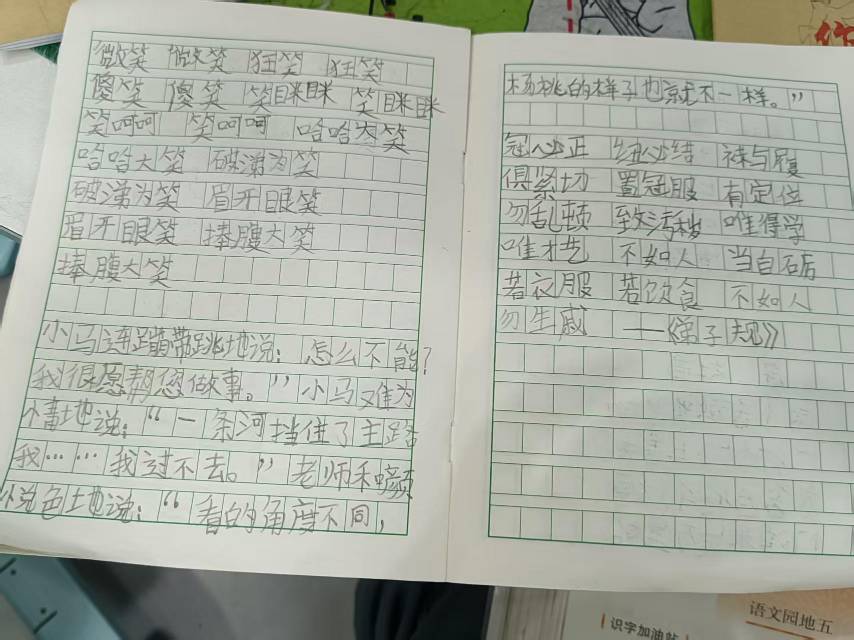 微笑 微笑 狂笑 狂笑
傻笑 傻笑 笑眯眯 笑眯眯
笑呵呵 笑呵呵 哈哈大笑
哈哈大笑 破涕为笑
破涕为笑 眉开眼笑
眉开眼笑 捧腹大笑
捧腹大笑
小马连蹦带跳地说：怎么不能？
我很愿帮您做事。”小马又难为
情地说：“一条河挡住了主路
我……我过不去。”老师和颜
悦色土地说：“看的角度不同，
杨桃的样子也就不一样。”
冠必正 纽必结 袜与履
俱紧切 置冠服 有定位
勿乱顿 致污秽 唯得学
唯才艺 不如人 当自砺
若衣服 若饮食 不如人
勿生戚 ——《弟子规》
识字加油站
语文园地五